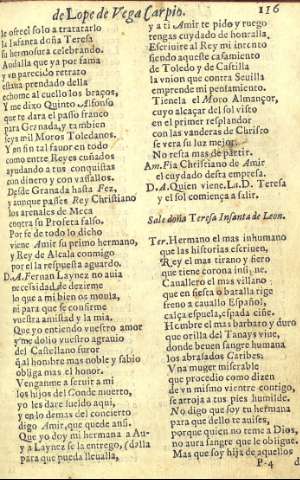 de Lope de Vega Carpio. 116
le ofreci solo a tratatarlo
la Infanta doña Teresa
su hermosura celebrando.
Audalla que ya por fama
y vn parecido retrato
estaua prendado della
echome al cuello los braços,
Y me dixo Quinto Alfonso
que te dara el passo franco
para Granada, y tambien
seys mil Moros Toledanos.
Y en fin tal fauor en todo
como entre Reyes cuñados
ayudando a tus conquistas
con dinero y con vassallos.
Desde Granada hasta Fez,
y aunque passes Rey Christiano
los arenales de Meca
contra su Profeta falso.
Por fe de todo lo dicho
viene Amir su primo hermano,
y Rey de Alcala conmigo
por ella respuesta aguardo.
D.A. Fernan Laynez no auia
necessidad de dezirme
lo que a mi bien os mouia,
ni para que se confirme
vuestra amistad y la mia.
Que yo entiendo vuestro amor
y me dolio vuestro agrauio
del Castellano furor
que al hombre mas noble y sabio
obliga mas el honor.
Venganme a seruir a mi
los hijos del Conde muerto,
yo les dare sueldo aqui,
y en lo demas del concierto
digo Amir, que quede ansi.
Que yo doy mi hermana a Au-
y a Laynez se la entrego, (dalla
para que pueda lleualla,
y a ti Amir te pido y ruego
tengas cuydado de honralla.
Escriuire al Rey mi intento
siendo aqueste casamiento
de Toledo y de Castilla
la vnion que contra Seuilla
emprende mi pensamiento.
Tienela el Moro Almançor,
cuyo alcaçar del sol visto
en el primer resplandor
con las vanderas de Christo
se vera su luz mejor.
No resta mas de partir.
Am. Fia Christiano de Amir
el cuydado desta empresa.
D.A. Quien viene. La. D. Teresa
y el sol comiença a salir.
Sale doña Teresa Infanta de Leon.
Ter. Hermano el mas inhumano
que las historias escriuen,
Rey el mas tirano y fiero
que tiene corona insine.
Cauallero el mas villano
que en fiesta o batalla rige
freno a cauallo Español,
calça espuela, espada ciñe.
Hombre el mas barbaro y duro
que orilla del Tanays viue,
donde beuen sangre humana
los abrasados Caribes;
Vna muger miserable
que procedio como dizen
de vn mismo vientre contigo,
se arroja a tus pies humilde.
No digo que soy tu hermana
para que dello te auises,
porque quien no teme a Dios,
no aura sangre que le obligue.
Mas que soy hija de aquellos
P-4 d